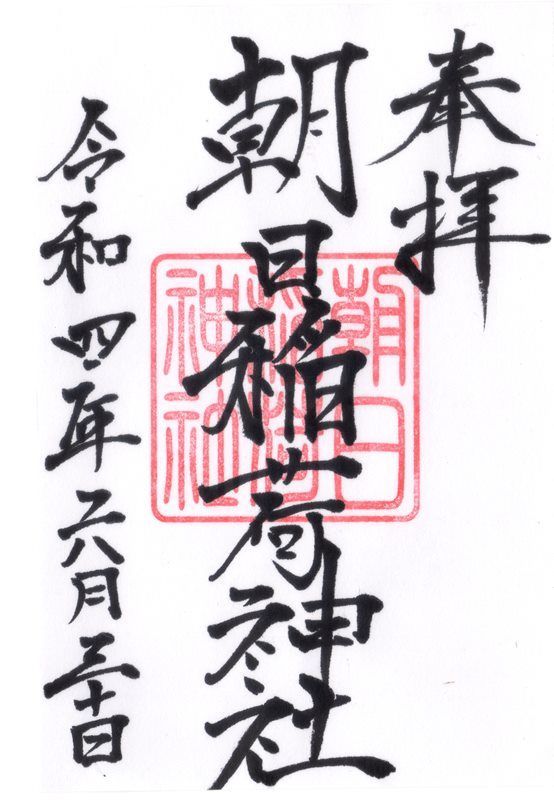 奉拝
朝日稲荷神社
令和四年六月三十日
朝日
稲荷
神社